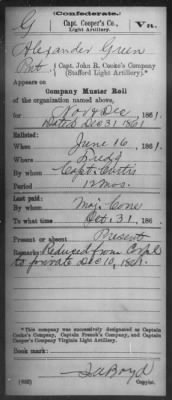 (Confederate.)
G Capt. Cooper's Co., Va.
Light Artillery.*
Alexander Green
Pvt., Capt. John R. Cooke's Company
(Stafford Light Artillery).*
Appears on
Company Muster Roll
of the organization named above,
for Nov & Dec, 1861.
Dated Dec 31, 1861
Enlisted:
When June 16, 1861.
Where Fredg
By whom Capt. Curtis
Period 12 mos.
Last paid:
By whom Maj. Cone
To what time Oct. 31, 1861.
Present or absent Present
Remarks: Reduced from Corpl
to private Dec 10, 1861.
*This company was successively designated as Captain
Cooke's Company, Captain French's Company, and Captain
Cooper's Company Virginia Light Artillery.
Book mark:
(642) Boyd
Copyist.